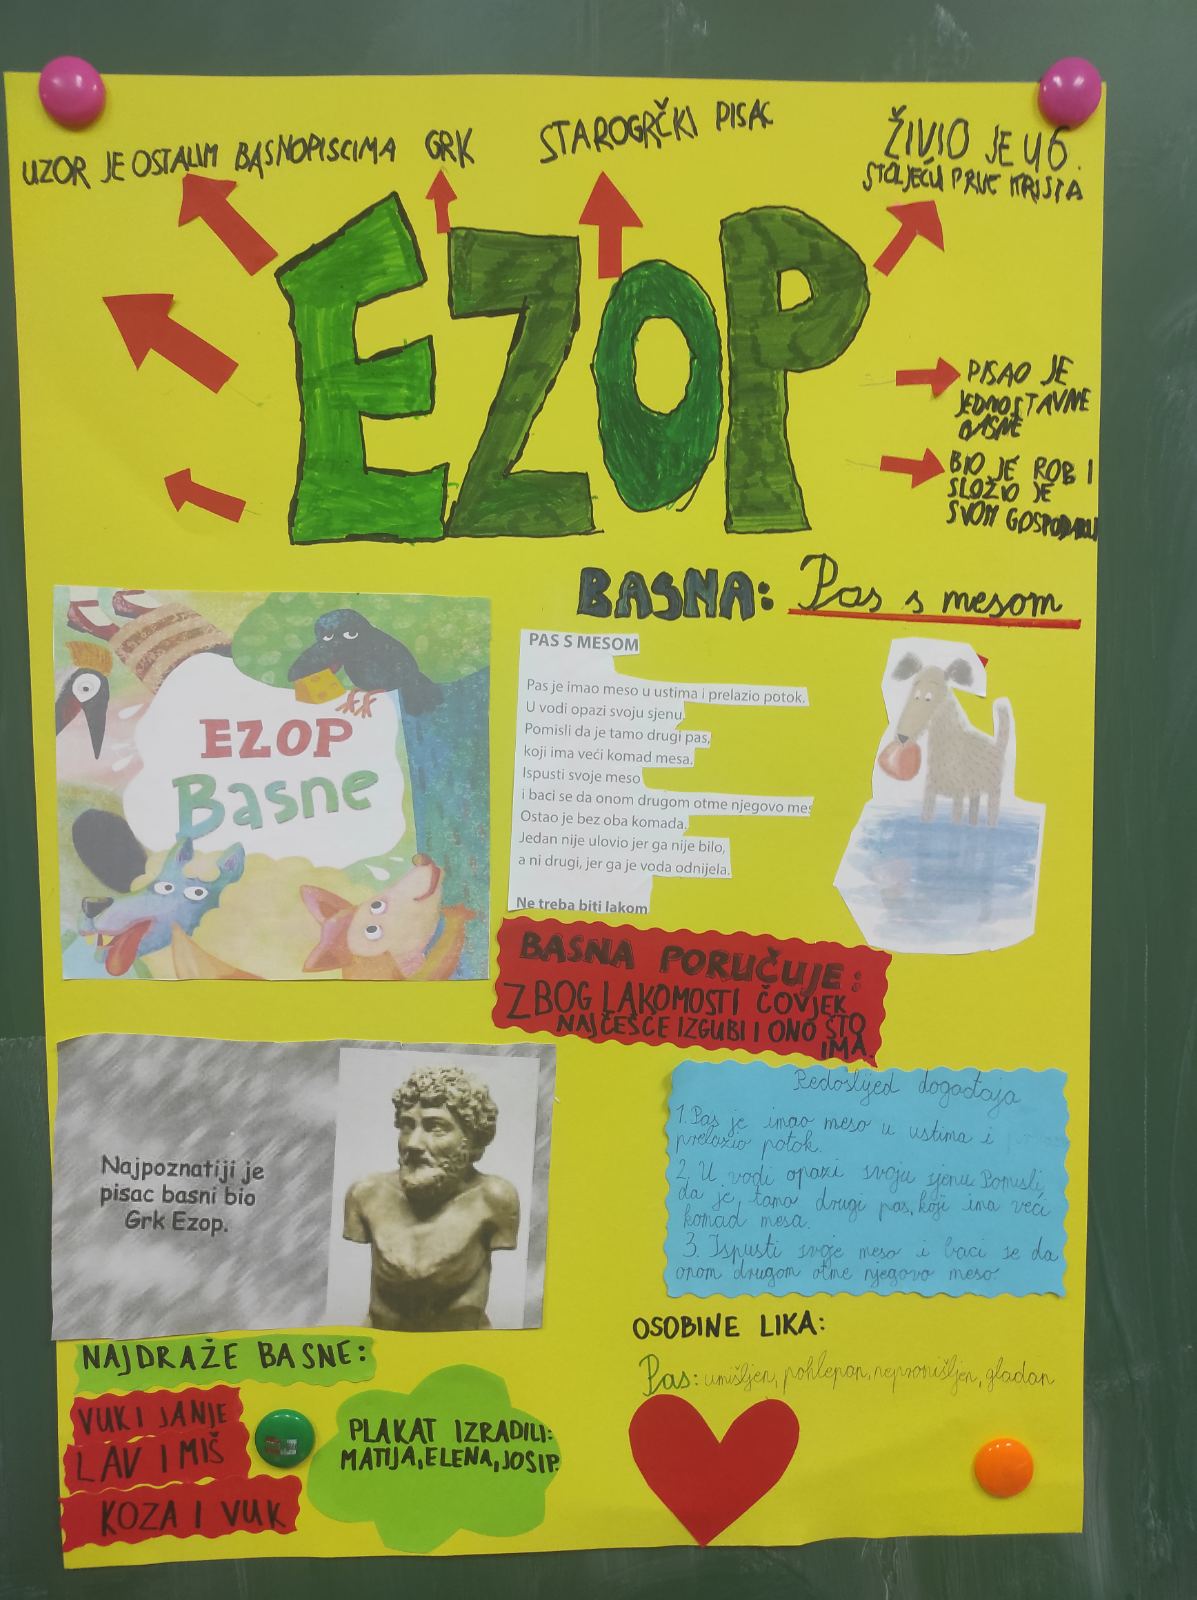 UZOR JE OSTALIM BASNOPISCIMA
GRK
STAROGRČKI PISAC
ŽIVIO JE U 6.
STOLJEĆU PRIJE KRISTA
EZOP
PISAO JE
JEDNOSTAVNE
BASNE
BIO JE ROB I
SLOŽIO JE
SVOM GOSPODARU
BASNA: Pas s mesom
EZOP
Basne
PAS S MESOM
Pas je imao meso u ustima i prelazio potok.
U vodi opazi svoju sjenu.
Pomisli da je tamo drugi pas,
koji ima veći komad mesa.
Ispusti svoje meso
i baci se da onom drugom otme njegovo mes
Ostao je bez oba komada.
Jedan nije ulovio jer ga nije bilo,
a ni drugi, jer ga je voda odnijela.
Ne treba biti lakom
BASNA PORUČUJE:
ZBOG LAKOMOSTI ČOVJEK
NAJČEŠĆE IZGUBI I ONO ŠTO
IMA.
Najpoznatiji je
pisac basni bio
Grk Ezop.
Redoslijed događaja
1. Pas je imao meso u ustima i
prelazio potok.
2. U vodi opazi svoju sjenu. Pomisli
da je tamo drugi pas, koji ima veći
komad mesa.
3. Ispusti svoje meso i baci se da
onom drugom otme njegovo meso.
OSOBINE LIKA:
Pas: umišljen, pohlepan, nepromišljen, gladan
NAJDRAŽE BASNE:
VUK I JANJE
LAV I MIŠ
KOZA I VUK
PLAKAT IZRADILI:
MATIJA, ELENA, JOSIP